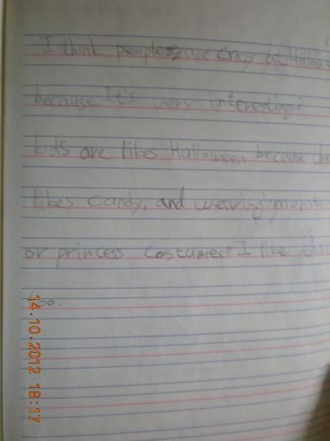 I think people are crazy
because It's very interesting?
kids are likes Halloween because
likes candy, and wearing
or princess costumes? I like
14.10.2012 18:17